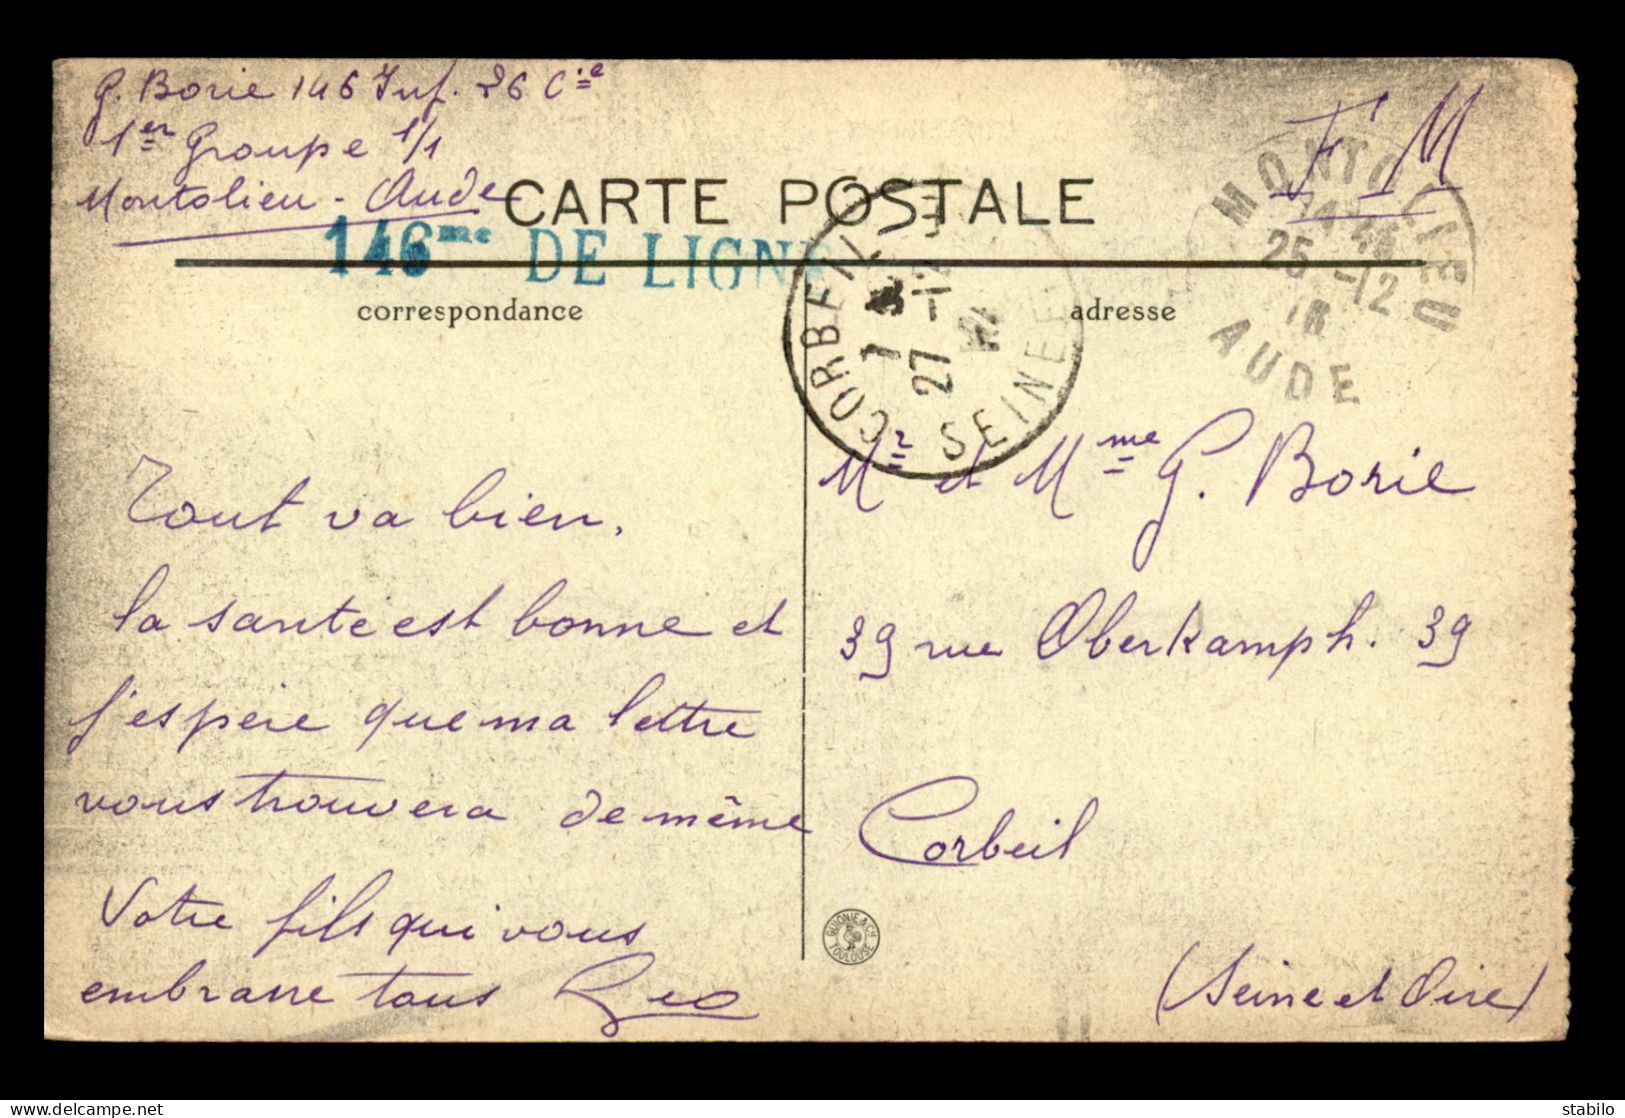 G. Borie 146 Inf. 26 Cie
1er Groupe 1/1
Montolieu - Aude
F M
CARTE POSTALE
146me DE LIGNE
MONTOLIEU
25 -12
16
AUDE
CORBEIL
27 -12
SEINE ET
correspondance
adresse
Tout va bien,
la santé est bonne et
j'espère que ma lettre
vous trouvera de même
Votre fils qui vous
embrasse tous Geo
Mr et Mme G. Borie
39 rue Oberkamph. 39
Corbeil
(Seine et Oise)
GUIONIE & Cie
TOULOUSE
stabilo